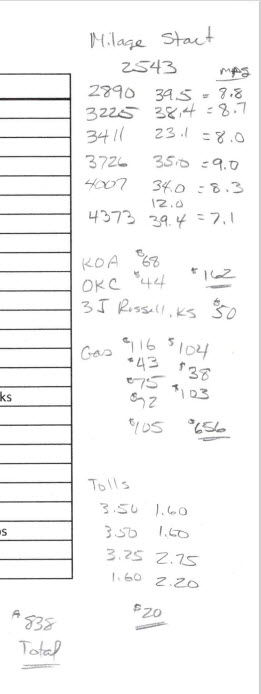 Milage Start
2543
mpg
2890 39.5 = 8.8
3225 38.4 = 8.7
3411 23.1 = 8.0
3726 35.0 = 9.0
4007 34.0 = 8.3
12.0
4373 39.4 = 7.1
KOA $68
OKC $44 $162
3J Russell, KS $50
Gas $116 $104
$43 $38
$75 $103
$72
$105 $656
ks
Tolls
3.50 1.60
3.50 1.60
s
3.25 2.75
1.60 2.20
$838 $20
Total